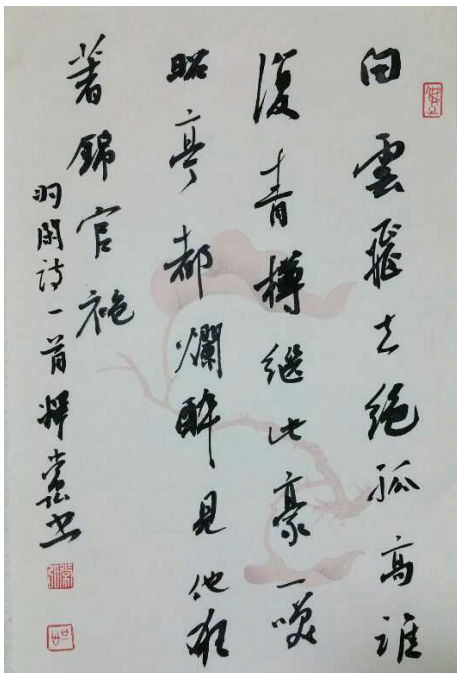 白雲飛去絕孤高誰
復青樽繼此豪一笑
昭亭都爛醉見他
著錦官袍
羽閑詩一首 釋 書